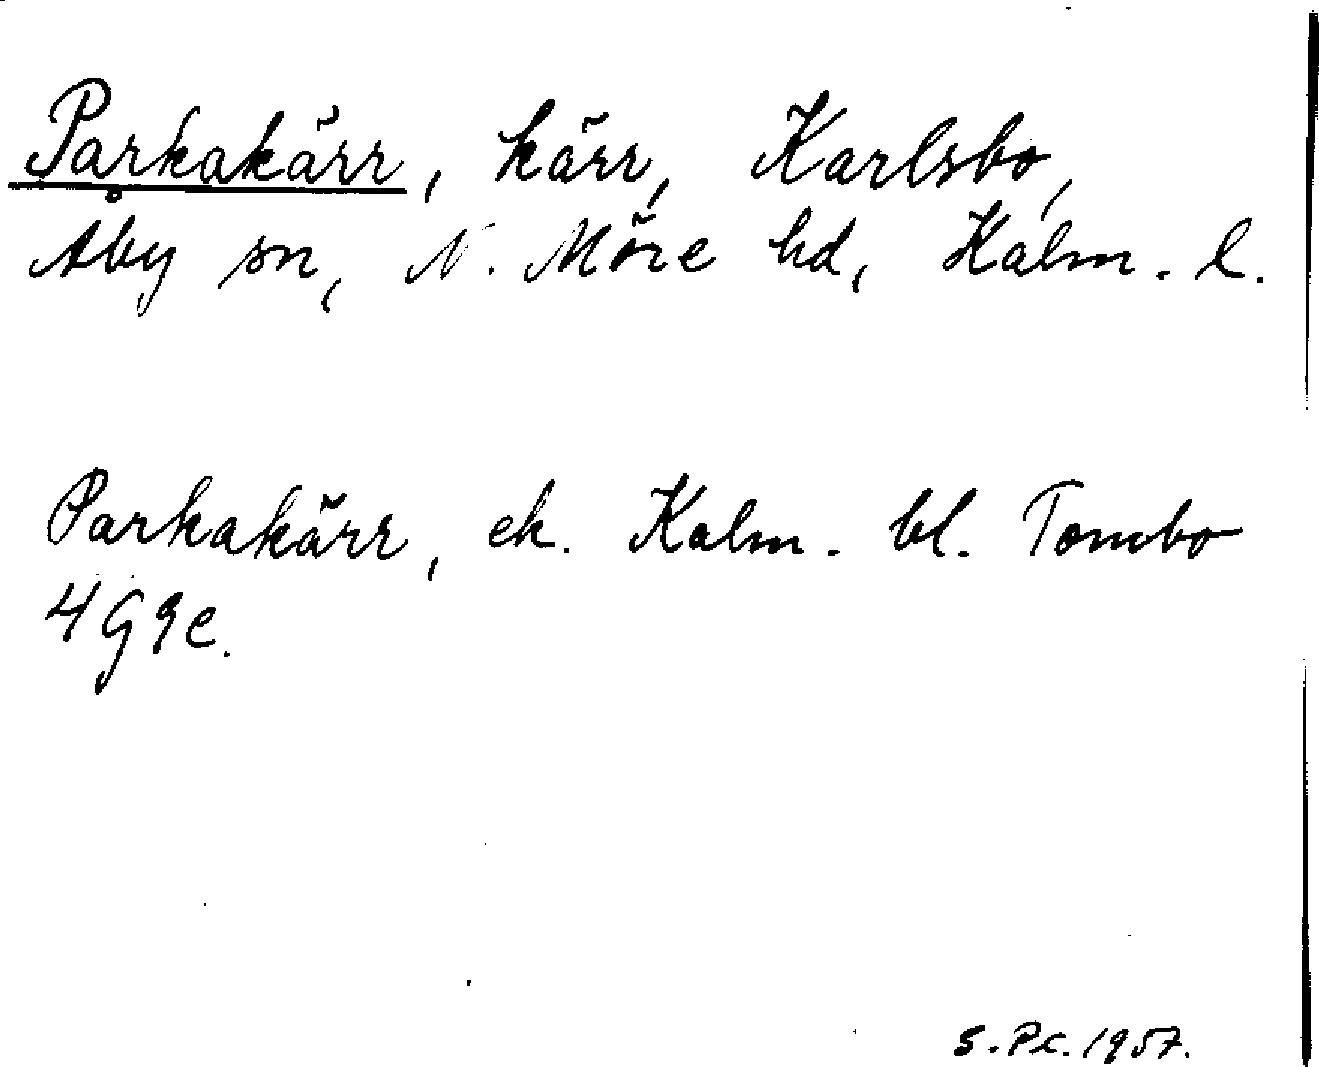 Parkakärr, kärr, Karlsbo,
Åby sn, N. Möre hd, Kalm. l.
Parkakärr, ek. Kalm. bl. Tombo
4G9c.
S.Pc. 1957.